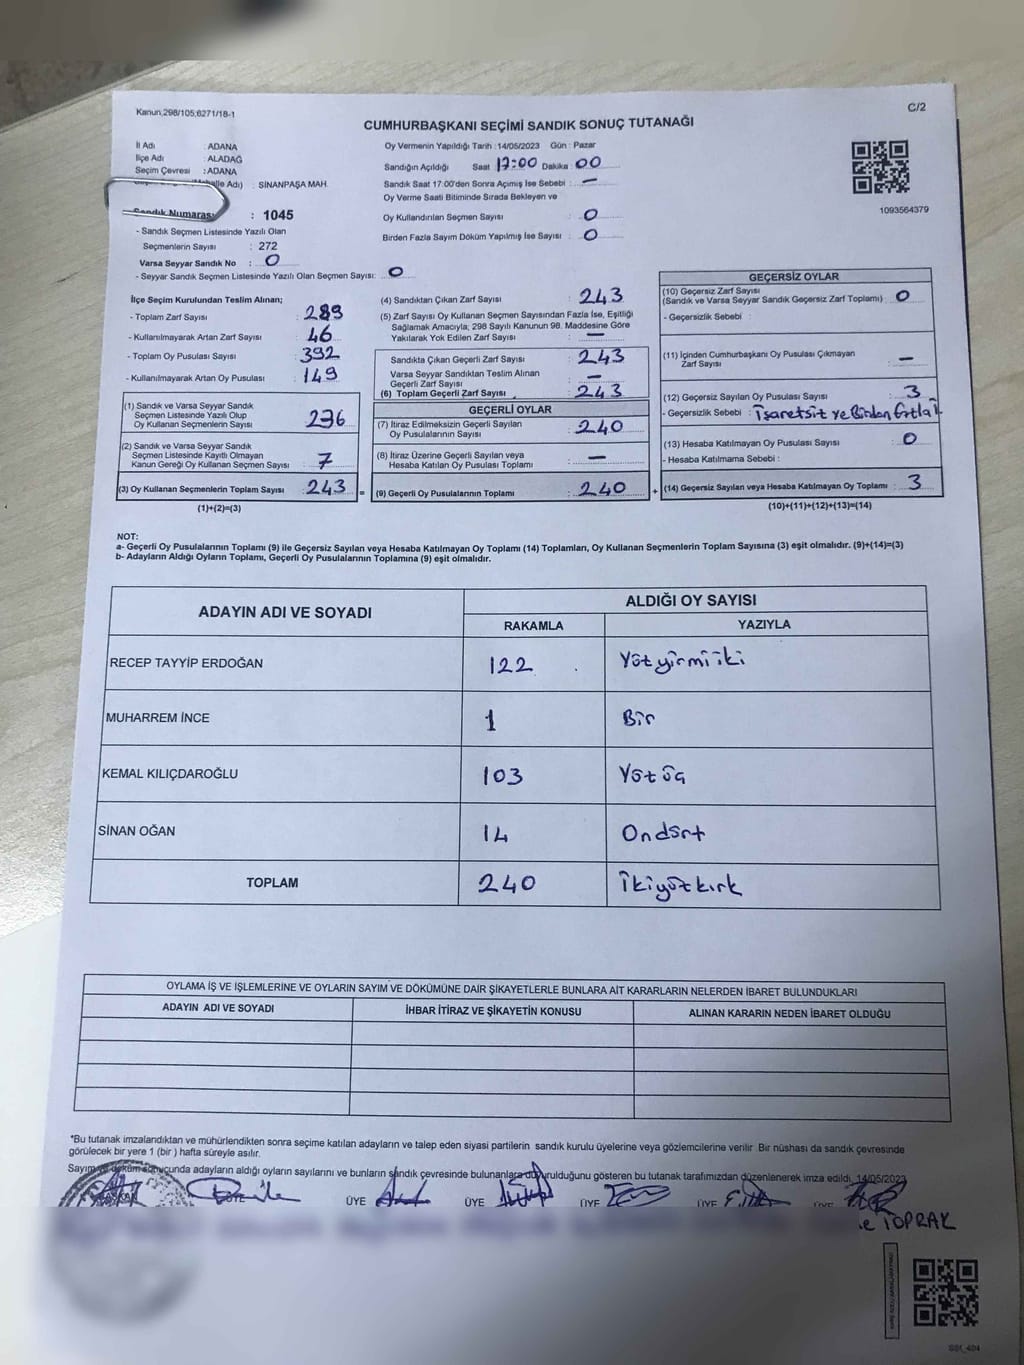 Kanun,298/105;6271/18-1
C/2
CUMHURBAŞKANI SEÇİMİ SANDIK SONUÇ TUTANAĞI
İl Adı : ADANA
İlçe Adı : ALADAĞ
Seçim Çevresi : ADANA
Adı) : SİNANPAŞA MAH.
Sandık Numarası : 1045
- Sandık Seçmen Listesinde Yazılı Olan
Seçmenlerin Sayısı : 272
Varsa Seyyar Sandık No : 0
- Seyyar Sandık Seçmen Listesinde Yazılı Olan Seçmen Sayısı: 0
Oy Vermenin Yapıldığı Tarih :14/05/2023 Gün : Pazar
Sandığın Açıldığı Saat 17:00 Dakika : 00
Sandık Saat 17:00'den Sonra Açımış İse Sebebi : —
Oy Verme Saati Bitiminde Sırada Bekleyen ve
Oy Kullandırılan Seçmen Sayısı : 0
Birden Fazla Sayım Döküm Yapılmış İse Sayısı : 0
1093564379
İlçe Seçim Kurulundan Teslim Alınan;
- Toplam Zarf Sayısı : 289
- Kullanılmayarak Artan Zarf Sayısı : 46
- Toplam Oy Pusulası Sayısı : 392
- Kullanılmayarak Artan Oy Pusulası : 149
(1) Sandık ve Varsa Seyyar Sandık
Seçmen Listesinde Yazılı Olup
Oy Kullanan Seçmenlerin Sayısı : 236
(2) Sandık ve Varsa Seyyar Sandık
Seçmen Listesinde Kayıtlı Olmayan
Kanun Gereği Oy Kullanan Seçmen Sayısı : 7
(3) Oy Kullanan Seçmenlerin Toplam Sayısı : 243 =
(1)+(2)=(3)
(4) Sandıktan Çıkan Zarf Sayısı : 243
(5) Zarf Sayısı Oy Kullanan Seçmen Sayısından Fazla İse, Eşitliği
Sağlamak Amacıyla; 298 Sayılı Kanunun 98. Maddesine Göre
Yakılarak Yok Edilen Zarf Sayısı : —
Sandıkta Çıkan Geçerli Zarf Sayısı : 243
Varsa Seyyar Sandıktan Teslim Alınan
Geçerli Zarf Sayısı : —
(6) Toplam Geçerli Zarf Sayısı : 243
GEÇERLİ OYLAR
(7) İtiraz Edilmeksizin Geçerli Sayılan
Oy Pusulalarının Sayısı : 240
(8) İtiraz Üzerine Geçerli Sayılan veya
Hesaba Katılan Oy Pusulası Toplamı : —
(9) Geçerli Oy Pusulalarının Toplamı : 240 +
GEÇERSİZ OYLAR
(10) Geçersiz Zarf Sayısı
(Sandık ve Varsa Seyyar Sandık Geçersiz Zarf Toplamı) : 0
- Geçersizlik Sebebi :
(11) İçinden Cumhurbaşkanı Oy Pusulası Çıkmayan
Zarf Sayısı : —
(12) Geçersiz Sayılan Oy Pusulası Sayısı : 3
- Geçersizlik Sebebi : İşaretsiz ve Birden
(13) Hesaba Katılmayan Oy Pusulası Sayısı : 0
- Hesaba Katılmama Sebebi :
(14) Geçersiz Sayılan veya Hesaba Katılmayan Oy Toplamı : 3
(10)+(11)+(12)+(13)=(14)
NOT:
a- Geçerli Oy Pusulalarının Toplamı (9) ile Geçersiz Sayılan veya Hesaba Katılmayan Oy Toplamı (14) Toplamları, Oy Kullanan Seçmenlerin Toplam Sayısına (3) eşit olmalıdır. (9)+(14)=(3)
b- Adayların Aldığı Oyların Toplamı, Geçerli Oy Pusulalarının Toplamına (9) eşit olmalıdır.
ADAYIN ADI VE SOYADI ALDIĞI OY SAYISI
RAKAMLA YAZIYLA
RECEP TAYYİP ERDOĞAN 122 Yüzyirmiiki
MUHARREM İNCE 1 Bir
KEMAL KILIÇDAROĞLU 103 Yüzüç
SİNAN OĞAN 14 Ondört
TOPLAM 240 İkiyüzkırk
OYLAMA İŞ VE İŞLEMLERİNE VE OYLARIN SAYIM VE DÖKÜMÜNE DAİR ŞİKAYETLERLE BUNLARA AİT KARARLARIN NELERDEN İBARET BULUNDUKLARI
ADAYIN ADI VE SOYADI İHBAR İTİRAZ VE ŞİKAYETİN KONUSU ALINAN KARARIN NEDEN İBARET OLDUĞU
*Bu tutanak imzalandıktan ve mühürlendikten sonra seçime katılan adayların ve talep eden siyasi partilerin sandık kurulu üyelerine veya gözlemcilerine verilir Bir nüshası da sandık çevresinde
görülecek bir yere 1 (bir ) hafta süreyle asılır.
Sayım ve döküm sonucunda adayların aldığı oyların sayılarını ve bunların sandık çevresinde bulunanlara duyurulduğunu gösteren bu tutanak tarafımızdan düzenlenerek imza edildi. 14/05/2023
BAŞKAN ÜYE ÜYE ÜYE ÜYE ÜYE ÜYE
TOPRAK